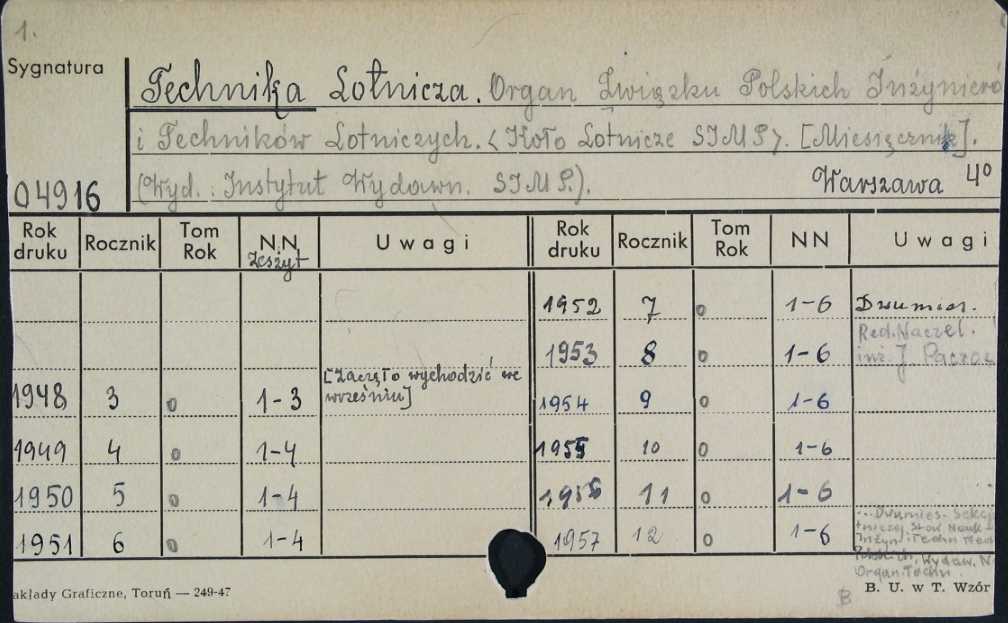 1.
Sygnatura
Technika Lotnicza. Organ Związku Polskich Inżynieró
i Techników Lotniczych. <Koło Lotnicze SIMP>. [Miesięcznik].
(Wyd.: Instytut Wydawn. SIMP.). Warszawa 4°
04916
Rok druku Rocznik Tom Rok N.N. Zeszyt Uwagi Rok druku Rocznik Tom Rok NN Uwagi
1952 7 o 1-6 Dwumies.
1953 8 o 1-6 Red. Naczel. inż. J.
1948 3 o 1-3 [Zaczęło wychodzić we wrześniu] 1954 9 o 1-6
1949 4 o 1-4 1955 10 o 1-6
1950 5 o 1-4 1956 11 o 1-6
1951 6 o 1-4 1957 12 o 1-6
...Dwumies. Sekcj
Stow. Nauk
Inżyn. i Techn.
Polskich, Wydaw. N.
Organ. Techn.
akłady Graficzne, Toruń — 249-47
B
B. U. w T. Wzór